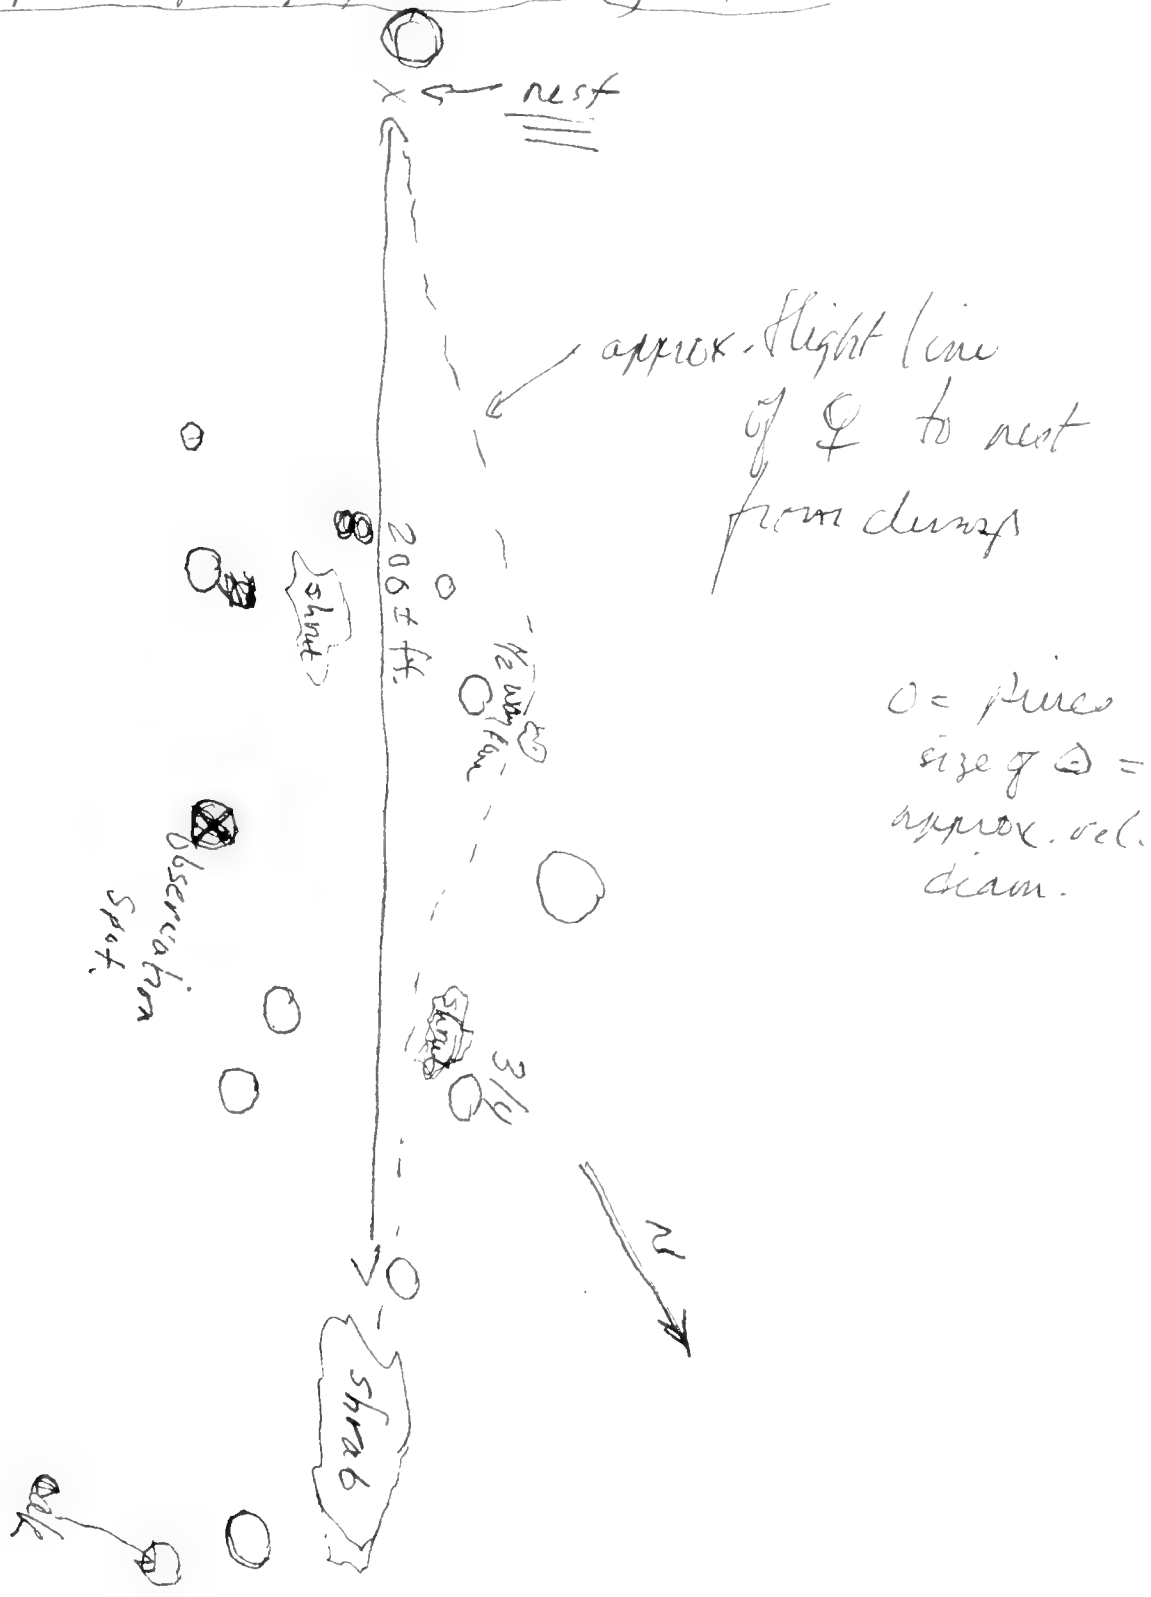 x ← nest
approx. flight line
of ♀ to nest
from dump
206 ± ft.
shrub
1/2 way
O = Pines
size of O =
approx. rel.
diam.
Observation
Spot.
shrub
3/4
N
shrub
oak